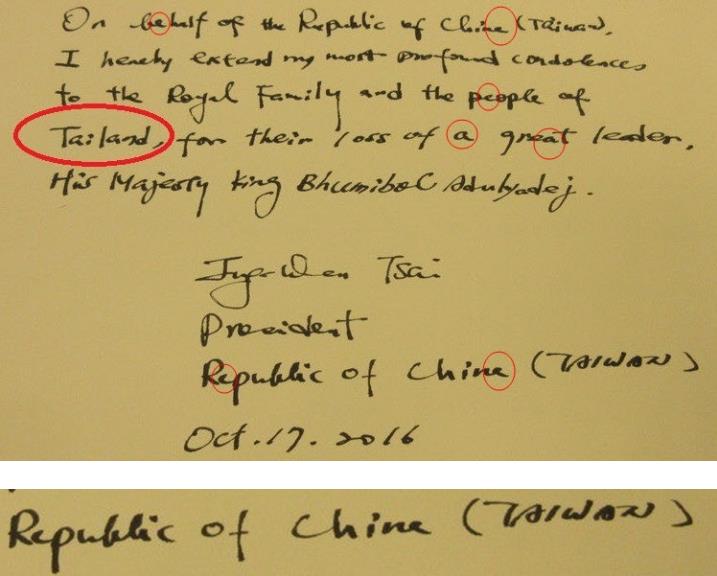 On behalf of the Republic of China (Taiwan),
I hereby extend my most profound condolences
to the Royal Family and the people of
Tailand, for their loss of a great leader,
His Majesty King Bhumibol Adulyadej.
Ing-Wen Tsai
President
Republic of China (TAIWAN)
Oct. 17. 2016
Republic of China (TAIWAN)